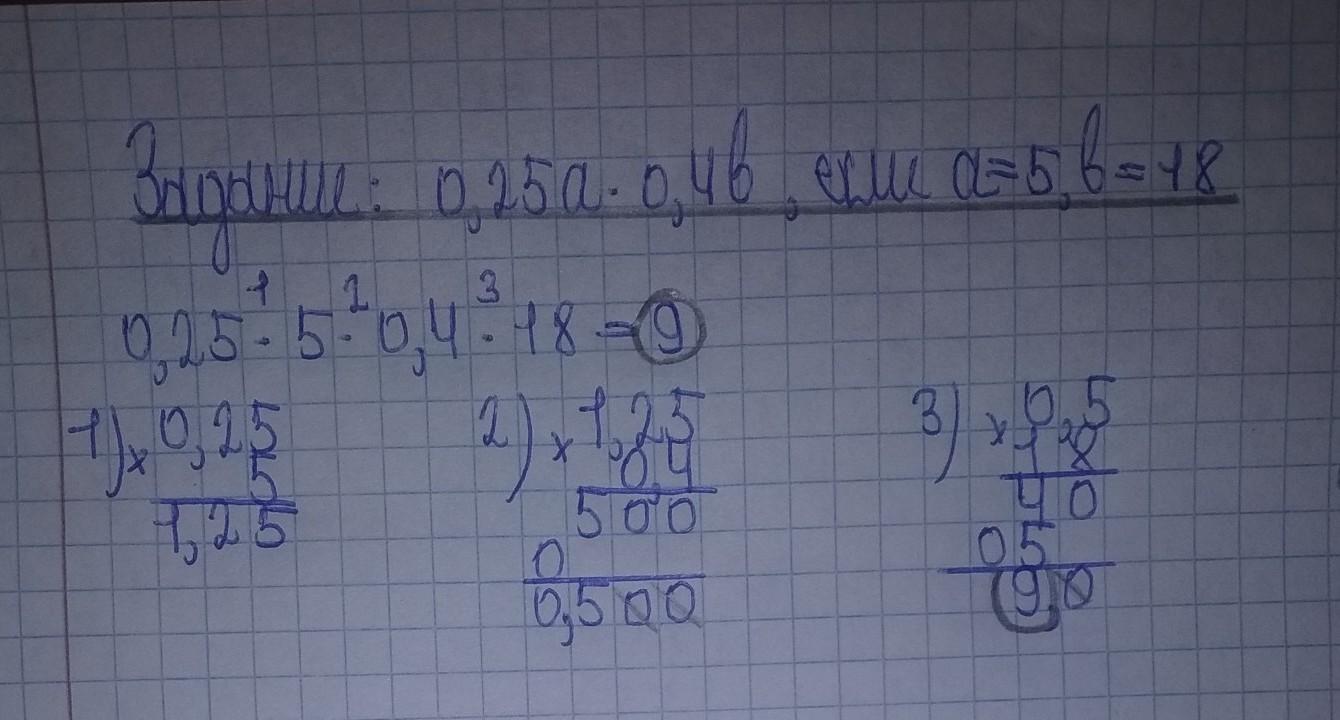 Задание: 0,25a · 0,4b, если a=5, b=18
0,25 · 5 · 0,4 · 18 = 9
1 2 3
1) × 0,25
5
1,25
2) × 1,25
0,4
500
0
0,500
3) × 0,5
18
40
05
9,0